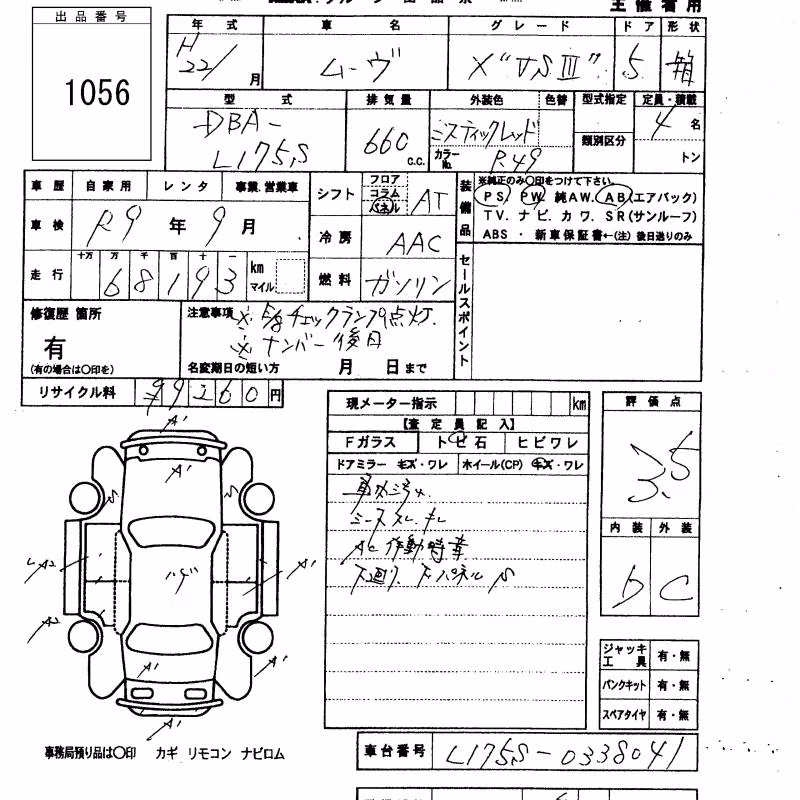 主催者用
出品番号
1056
年式 車名 グレード ドア 形状
H22/ 月 ムーヴ X "VSⅢ" 5 箱
型式 排気量 外装色 色替 型式指定 定員・積載
DBA-L175S 660 c.c. ミスティックレッド カラーNo. R49 類別区分 4 名 トン
車歴 自家用 レンタ 事業.営業車
車検 R9 年 9 月
走行 十万 万 千 百 十 一 68193 km マイル
シフト フロア コラム パネル AT
冷房 AAC
燃料 ガソリン
装備品
※純正のみ○印をつけて下さい。
PS. PW. 純AW. AB(エアバック)
TV. ナビ. カワ. SR(サンルーフ)
ABS ・ 新車保証書←(注) 後日送りのみ
セールスポイント
修復歴 箇所
有
(有の場合は○印を)
注意事項 ※ E/gチェックランプ点灯.
※ ナンバー後日
名変期日の短い方 月 日まで
リサイクル料 ¥9260円
現メーター指示 km
【査定員記入】
Fガラス トビ石 ヒビワレ
ドアミラー キズ・ワレ ホイール(CP) キズ・ワレ
車内汚れ
シーススレ.キレ
AC作動時異音
下廻り. 下パネル S
評価点
3.5
内装 外装
D C
A' A' A' A' A' A' A' A2 A2
ジャッキ工具 有・無
パンクキット 有・無
スペアタイヤ 有・無
事務局預り品は○印 カギ リモコン ナビロム
車台番号 L175S-0338041